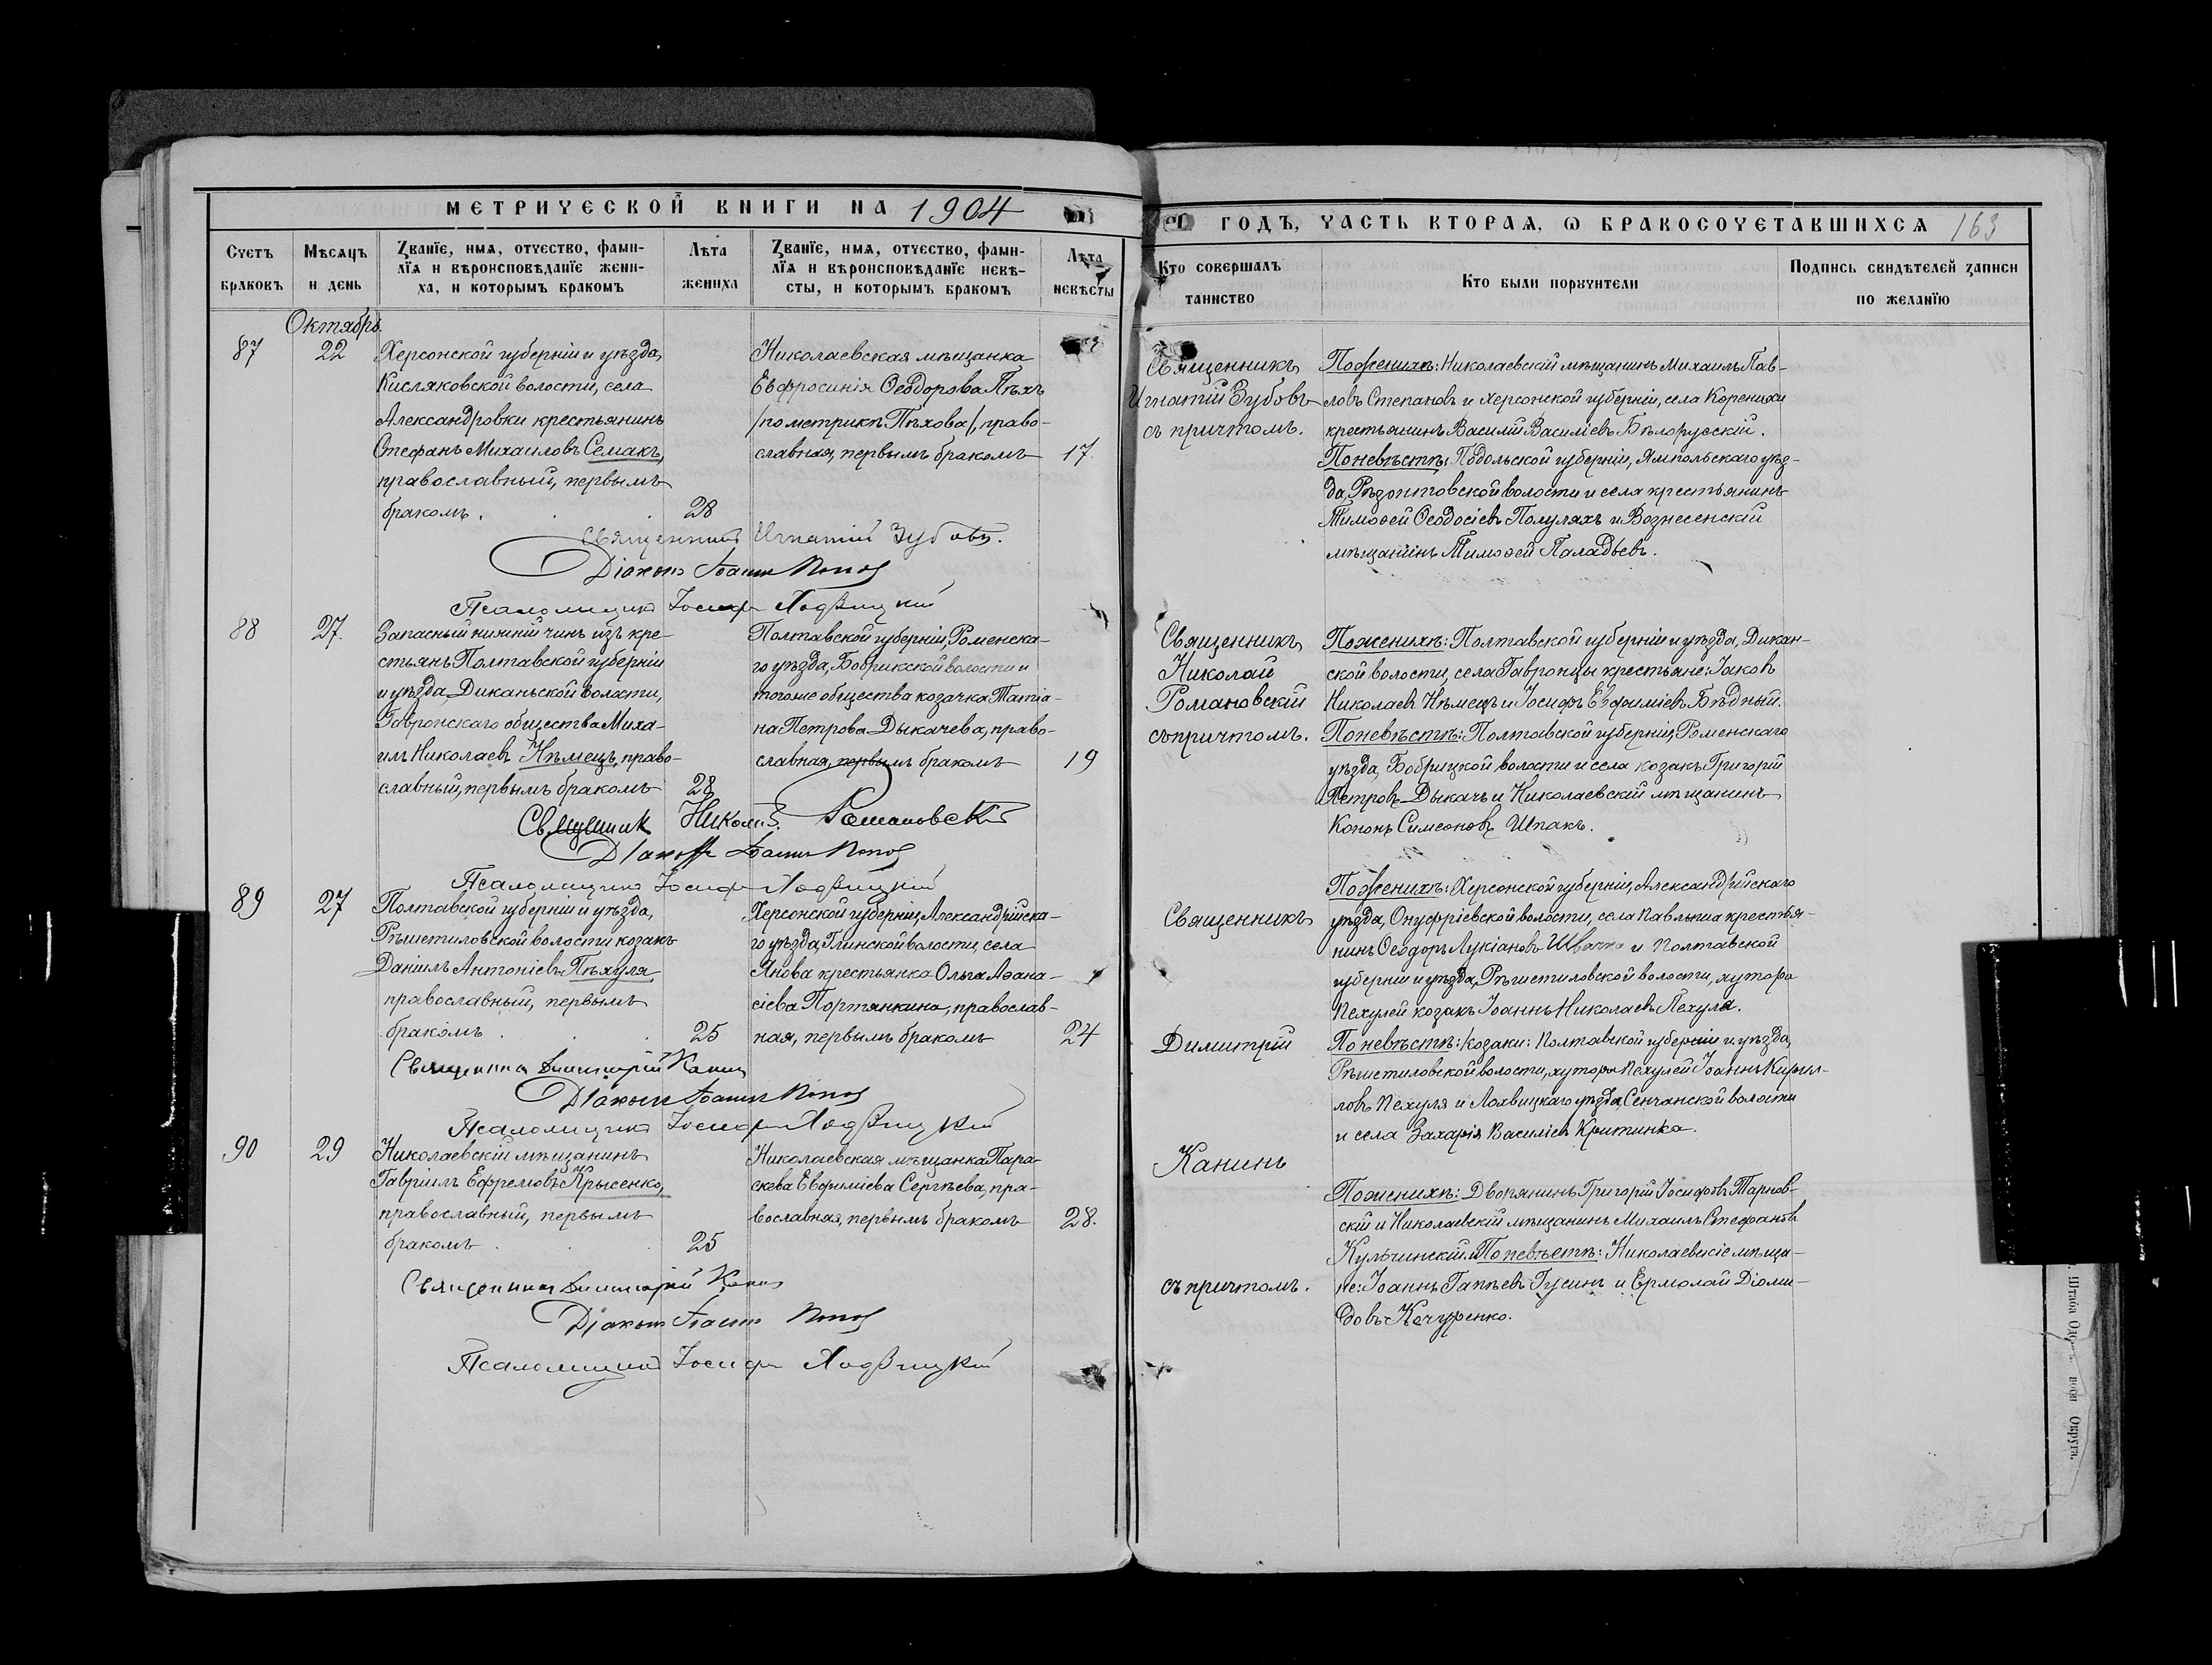 МЕТРИЧЕСКОЙ КНИГИ НА 1904
ГОДЪ, ЧАСТЬ ВТОРАЯ, Ѡ БРАКОСОЧЕТАВШИХСЯ 163
Счетъ
браковъ
Мѣсяцъ
и день
Званїе, имя, отчество, фами-
лїя и вѣроисповѣданїе жени-
ха, и которымъ бракомъ
Лѣта
жениха
Званїе, имя, отчество, фами-
лїя и вѣроисповѣданїе невѣ-
сты, и которымъ бракомъ
Лѣта
невѣсты
Кто совершалъ
таинство
Кто были поручители
Подпись свидѣтелей записи
по желанїю
Октябрь
87
22
Херсонской губерніи и уѣзда,
Кисляковской волости, села
Александровки крестьянинъ
Стефанъ Михаиловъ Семакъ,
православный, первымъ
бракомъ.
28
Николаевская мѣщанка
Евфросинія Ѳеодорова Пѣхъ
/по метрикѣ Пѣхова/, право-
славная, первымъ бракомъ
17
Священникъ
Игнатій Зубовъ
съ причтомъ.
По женихѣ: Николаевскій мѣщанинъ Михаилъ Пав-
ловъ Степановъ и Херсонской губерніи, села Коренихи
крестьянинъ Василій Василіевъ Бѣлорусскій.
По невѣстѣ: Подольской губерніи, Ямпольскаго уѣз-
да, волости и села крестьянинъ
Тимоѳей Ѳеодосіевъ Полуляхъ и Вознесенскій
мѣщанинъ Тимоѳей Паладьевъ.
Священникъ Игнатій Зубовъ.
Діаконъ Іоаннъ Попов
Псаломщикъ Іосифъ
88
27.
Запасный нижній чинъ изъ кре-
стьянъ Полтавской губерніи
и уѣзда, Диканьской волости,
Гавронскаго общества Миха-
илъ Николаевъ Нѣмецъ, право-
славный, первымъ бракомъ
28
Полтавской губерніи, Роменска-
го уѣзда, Бобрикской волости и
тогоже общества козачка Татіа-
на Петрова Дыкачева, право-
славная, первымъ бракомъ
19
Священникъ
Николай
Романовскій
съ причтомъ.
По женихѣ: Полтавской губерніи и уѣзда, Дикан-
ской волости, села Гавронцы крестьяне: Іаковъ
Николаевъ Нѣмецъ и Іосифъ Евфиміевъ Бѣдный.
По невѣстѣ: Полтавской губерніи, Роменскаго
уѣзда, Бобрицкой волости и села козакъ Григорій
Петровъ Дыкачъ и Николаевскій мѣщанинъ
Кононъ Симеоновъ Шпакъ.
Священникъ Николай Романовскій
Діаконъ Іоаннъ Попов
Псаломщикъ Іосифъ
89
27
Полтавской губерніи и уѣзда,
Рѣшетиловской волости козакъ
Даніилъ Антоніевъ Пѣхуля
православный, первымъ
бракомъ.
25
Херсонской губерніи, Александрійска-
го уѣзда, Глинской волости, села
Янова крестьянка Ольга Аѳана-
сіева Портянкина, православ-
ная, первымъ бракомъ
24
Священникъ
Димитрій
Канинъ
съ причтомъ.
По женихѣ: Херсонской губерніи, Александрійскаго
уѣзда, Онуфріевской волости, села Павлыша крестья-
нинъ Ѳеодоръ Лукіановъ Швачка и Полтавской
губерніи и уѣзда, Рѣшетиловской волости, хутора
Пехулей козакъ Іоаннъ Николаевъ Пехуля.
По невѣстѣ: козаки: Полтавской губерніи и уѣзда,
Рѣшетиловской волости, хутора Пехулей Іоаннъ Кирил-
ловъ Пехуля и Лохвицкаго уѣзда, Сенчанской волости
и села Захарія Василіевъ Критинка.
Священникъ Димитрій Канин
Діаконъ Іоаннъ Попов
Псаломщикъ Іосифъ
90
29
Николаевскій мѣщанинъ
Гавріилъ Ефремовъ Крысенко,
православный, первымъ
бракомъ.
25
Николаевская мѣщанка Пара-
скева Евфиміева Сергѣева, пра-
вославная, первымъ бракомъ
28.
По женихѣ: Дворянинъ Григорій Іосифовъ Тарнов-
скій и Николаевскій мѣщанинъ Михаилъ Стефановъ
Кульчинскій. По невѣстѣ: Николаевскіе мѣща-
не: Іоаннъ Гусинъ и Ермолай Діоми-
довъ Качуренко.
Священникъ Димитрій Канин
Діаконъ Іоаннъ Попов
Псаломщикъ Іосифъ
Штаба Округа.